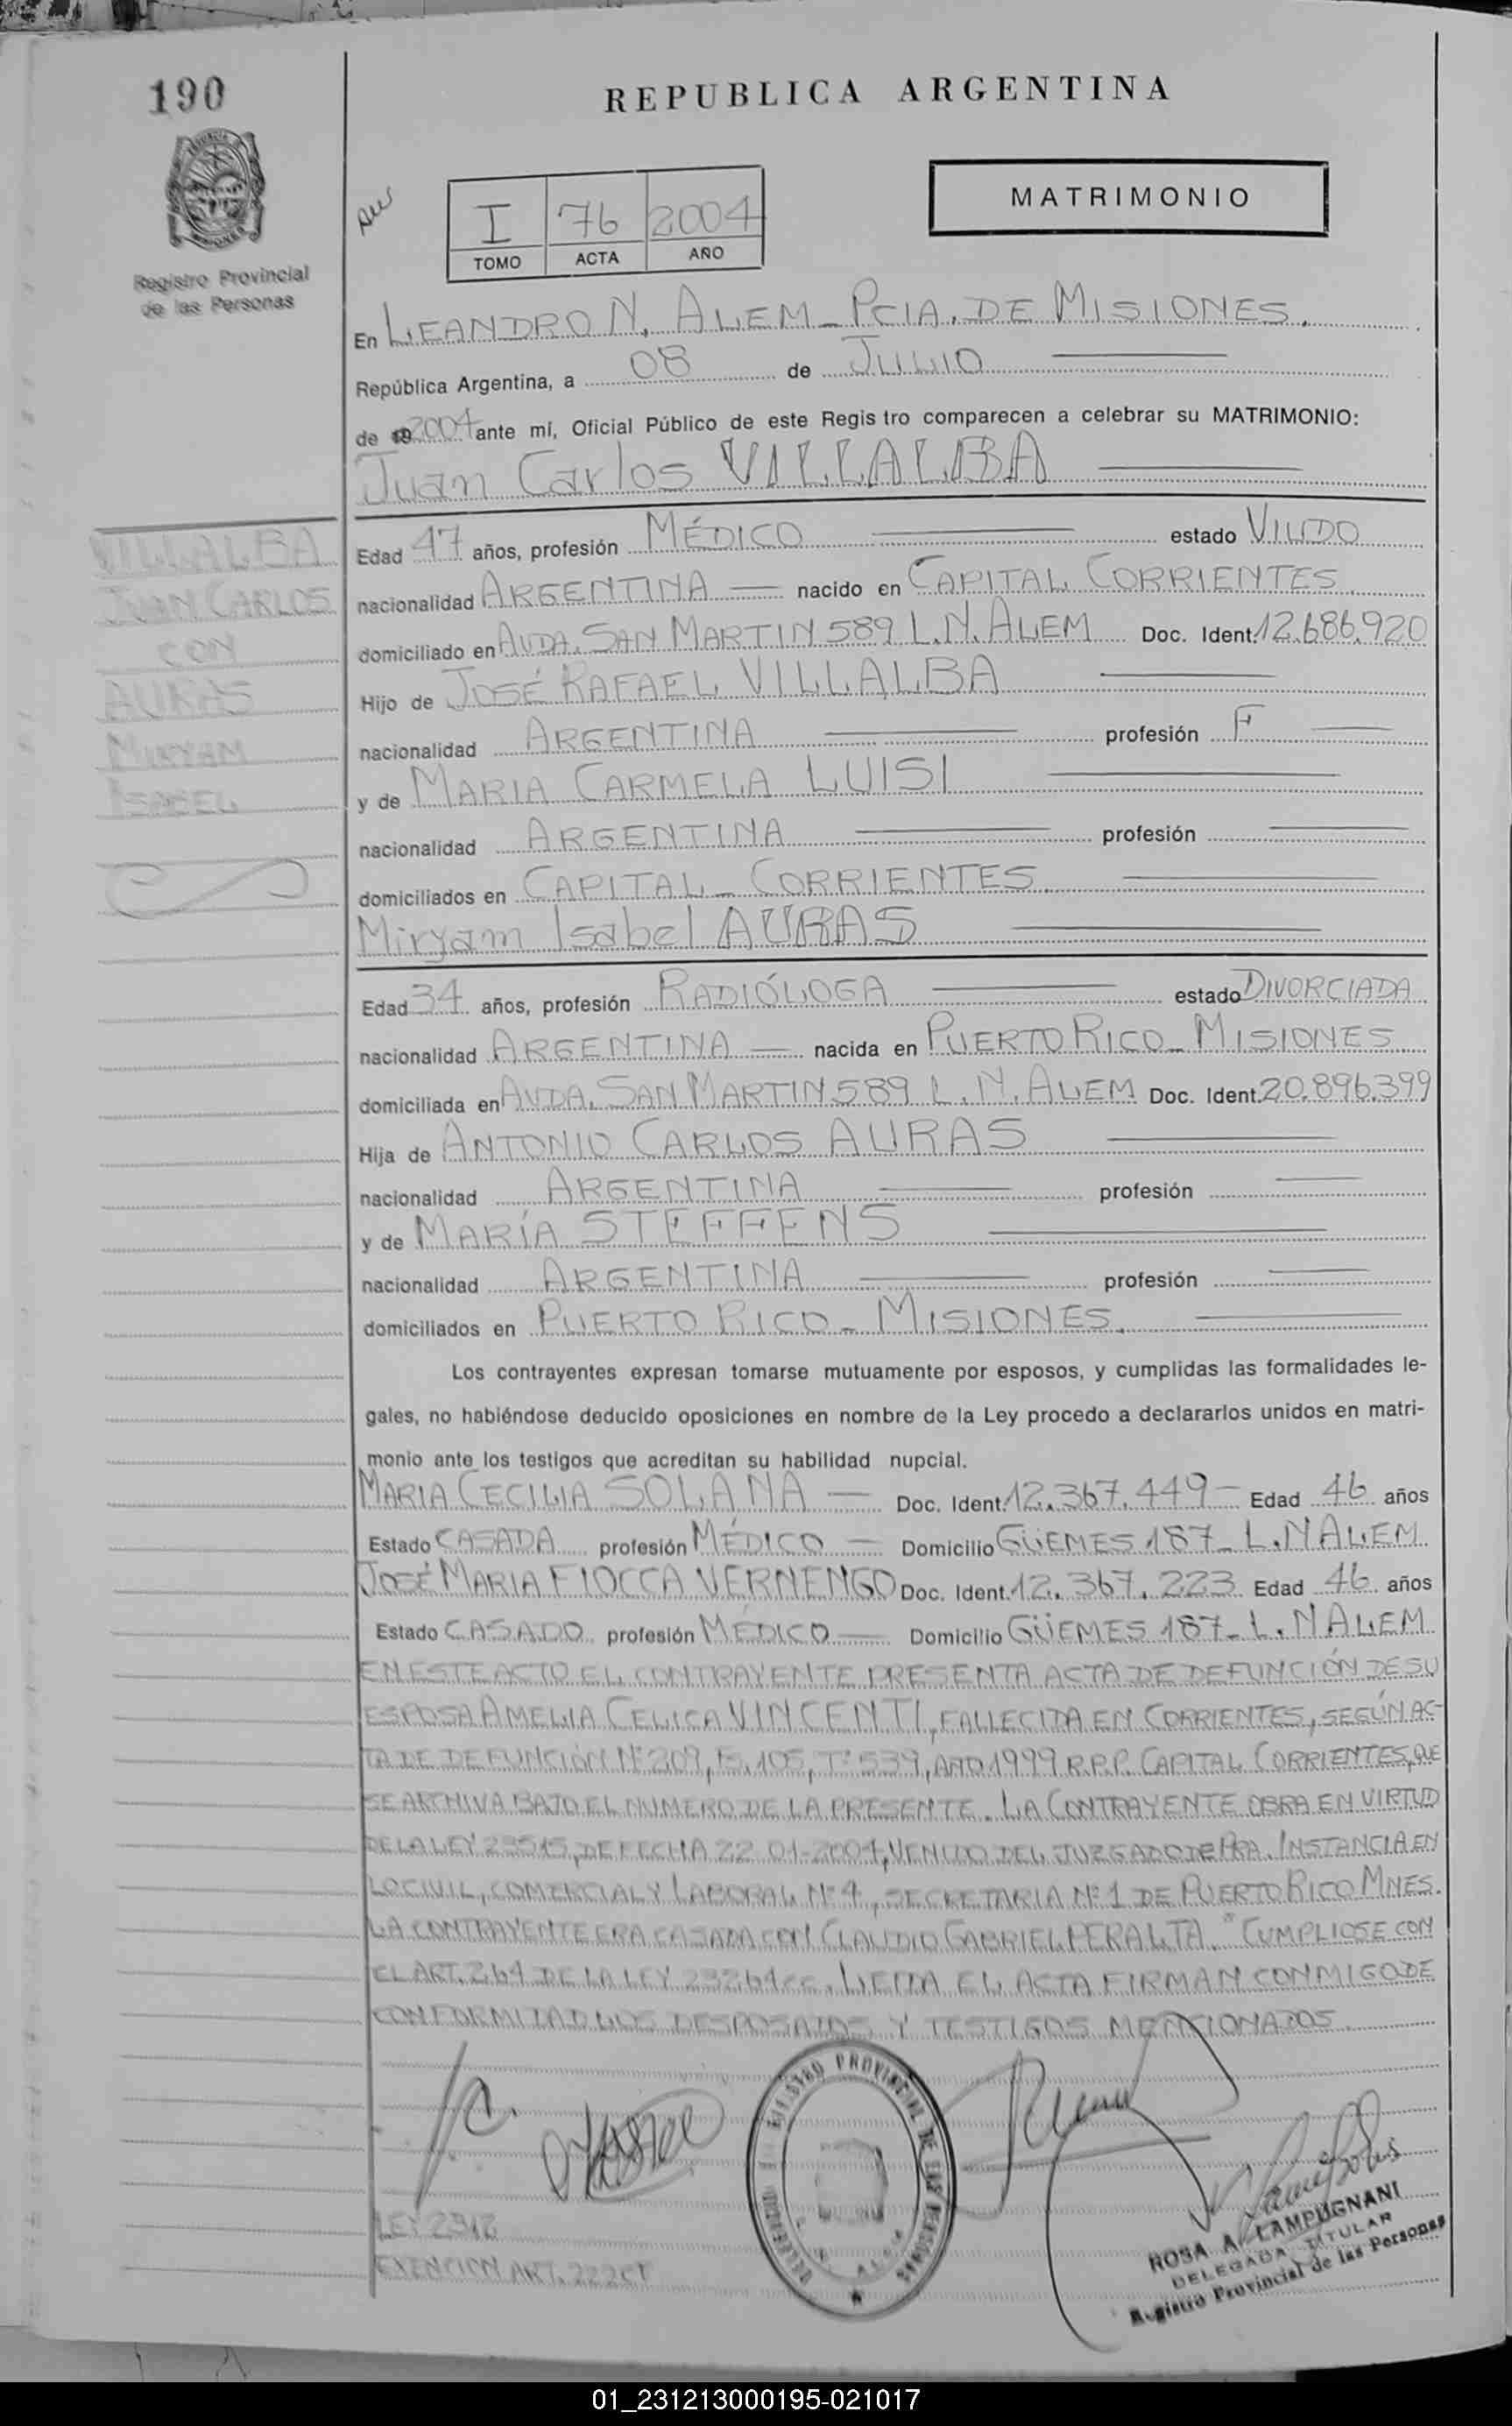 190
REPUBLICA ARGENTINA
MATRIMONIO
I 76 2004
TOMO ACTA AÑO
Registro Provincial
de las Personas
En LEANDRO N. ALEM_ PCIA. DE MISIONES.
República Argentina, a 08 de JULIO
de 2004 ante mí, Oficial Público de este Regis tro comparecen a celebrar su MATRIMONIO:
Juan Carlos VILLALBA
VILLALBA
JUAN CARLOS
CON
AURAS
MIRYAM
ISABEL
Edad 47 años, profesión MÉDICO estado VIUDO
nacionalidad ARGENTINA nacido en CAPITAL CORRIENTES.
domiciliado en AVDA. SAN MARTIN 589 L.N. ALEM Doc. Ident. 12.686.920
Hijo de JOSÉ RAFAEL VILLALBA
nacionalidad ARGENTINA profesión F
y de MARIA CARMELA LUISI
nacionalidad ARGENTINA profesión
domiciliados en CAPITAL_ CORRIENTES.
Miryam Isabel AURAS
Edad 34 años, profesión RADIÓLOGA estado DIVORCIADA
nacionalidad ARGENTINA nacida en PUERTO RICO_ MISIONES
domiciliada en AVDA. SAN MARTIN 589 L.N. ALEM Doc. Ident. 20.896.399
Hija de ANTONIO CARLOS AURAS
nacionalidad ARGENTINA profesión
y de MARÍA STEFFENS
nacionalidad ARGENTINA profesión
domiciliados en PUERTO RICO_ MISIONES.
Los contrayentes expresan tomarse mutuamente por esposos, y cumplidas las formalidades le-
gales, no habiéndose deducido oposiciones en nombre de la Ley procedo a declararlos unidos en matri-
monio ante los testigos que acreditan su habilidad nupcial.
MARIA CECILIA SOLANA Doc. Ident. 12.367.449 Edad 46 años
Estado CASADA profesión MÉDICO Domicilio GÜEMES 187_ L.N ALEM
JOSÉ MARIA FIOCCA VERNENGO Doc. Ident. 12.367.223 Edad 46 años
Estado CASADO profesión MÉDICO Domicilio GÜEMES 187_ L.N ALEM
EN ESTE ACTO EL CONTRAYENTE PRESENTA ACTA DE DEFUNCIÓN DE SU
ESPOSA AMELIA CELICA VINCENTI, FALLECIDA EN CORRIENTES, SEGÚN AC-
TA DE DEFUNCIÓN Nº 209, Fº 105, Tº 539, AÑO 1999 R.P.P. CAPITAL CORRIENTES, QUE
SE ARCHIVA BAJO EL NUMERO DE LA PRESENTE. LA CONTRAYENTE OBRA EN VIRTUD
DE LA LEY 23515, DE FECHA 22-01-2004, VENIDO DEL JUZGADO DE PRA. INSTANCIA EN
LO CIVIL, COMERCIAL Y LABORAL Nº 4, SECRETARIA Nº 1 DE PUERTO RICO MNES.
LA CONTRAYENTE ERA CASADA CON CLAUDIO GABRIEL PERALTA. "CUMPLIOSE CON
EL ART. 264 DE LA LEY 23264cc. LEIDA EL ACTA FIRMAN CONMIGO DE
CONFORMIDAD LOS DESPOSADOS Y TESTIGOS MENCIONADOS.
REGISTRO PROVINCIAL DE LAS PERSONAS
ROSA A. LAMPUGNANI
DELEGADA TITULAR
Registro Provincial de las Personas
EXENCION ART. 222 CF
01_231213000195-021017